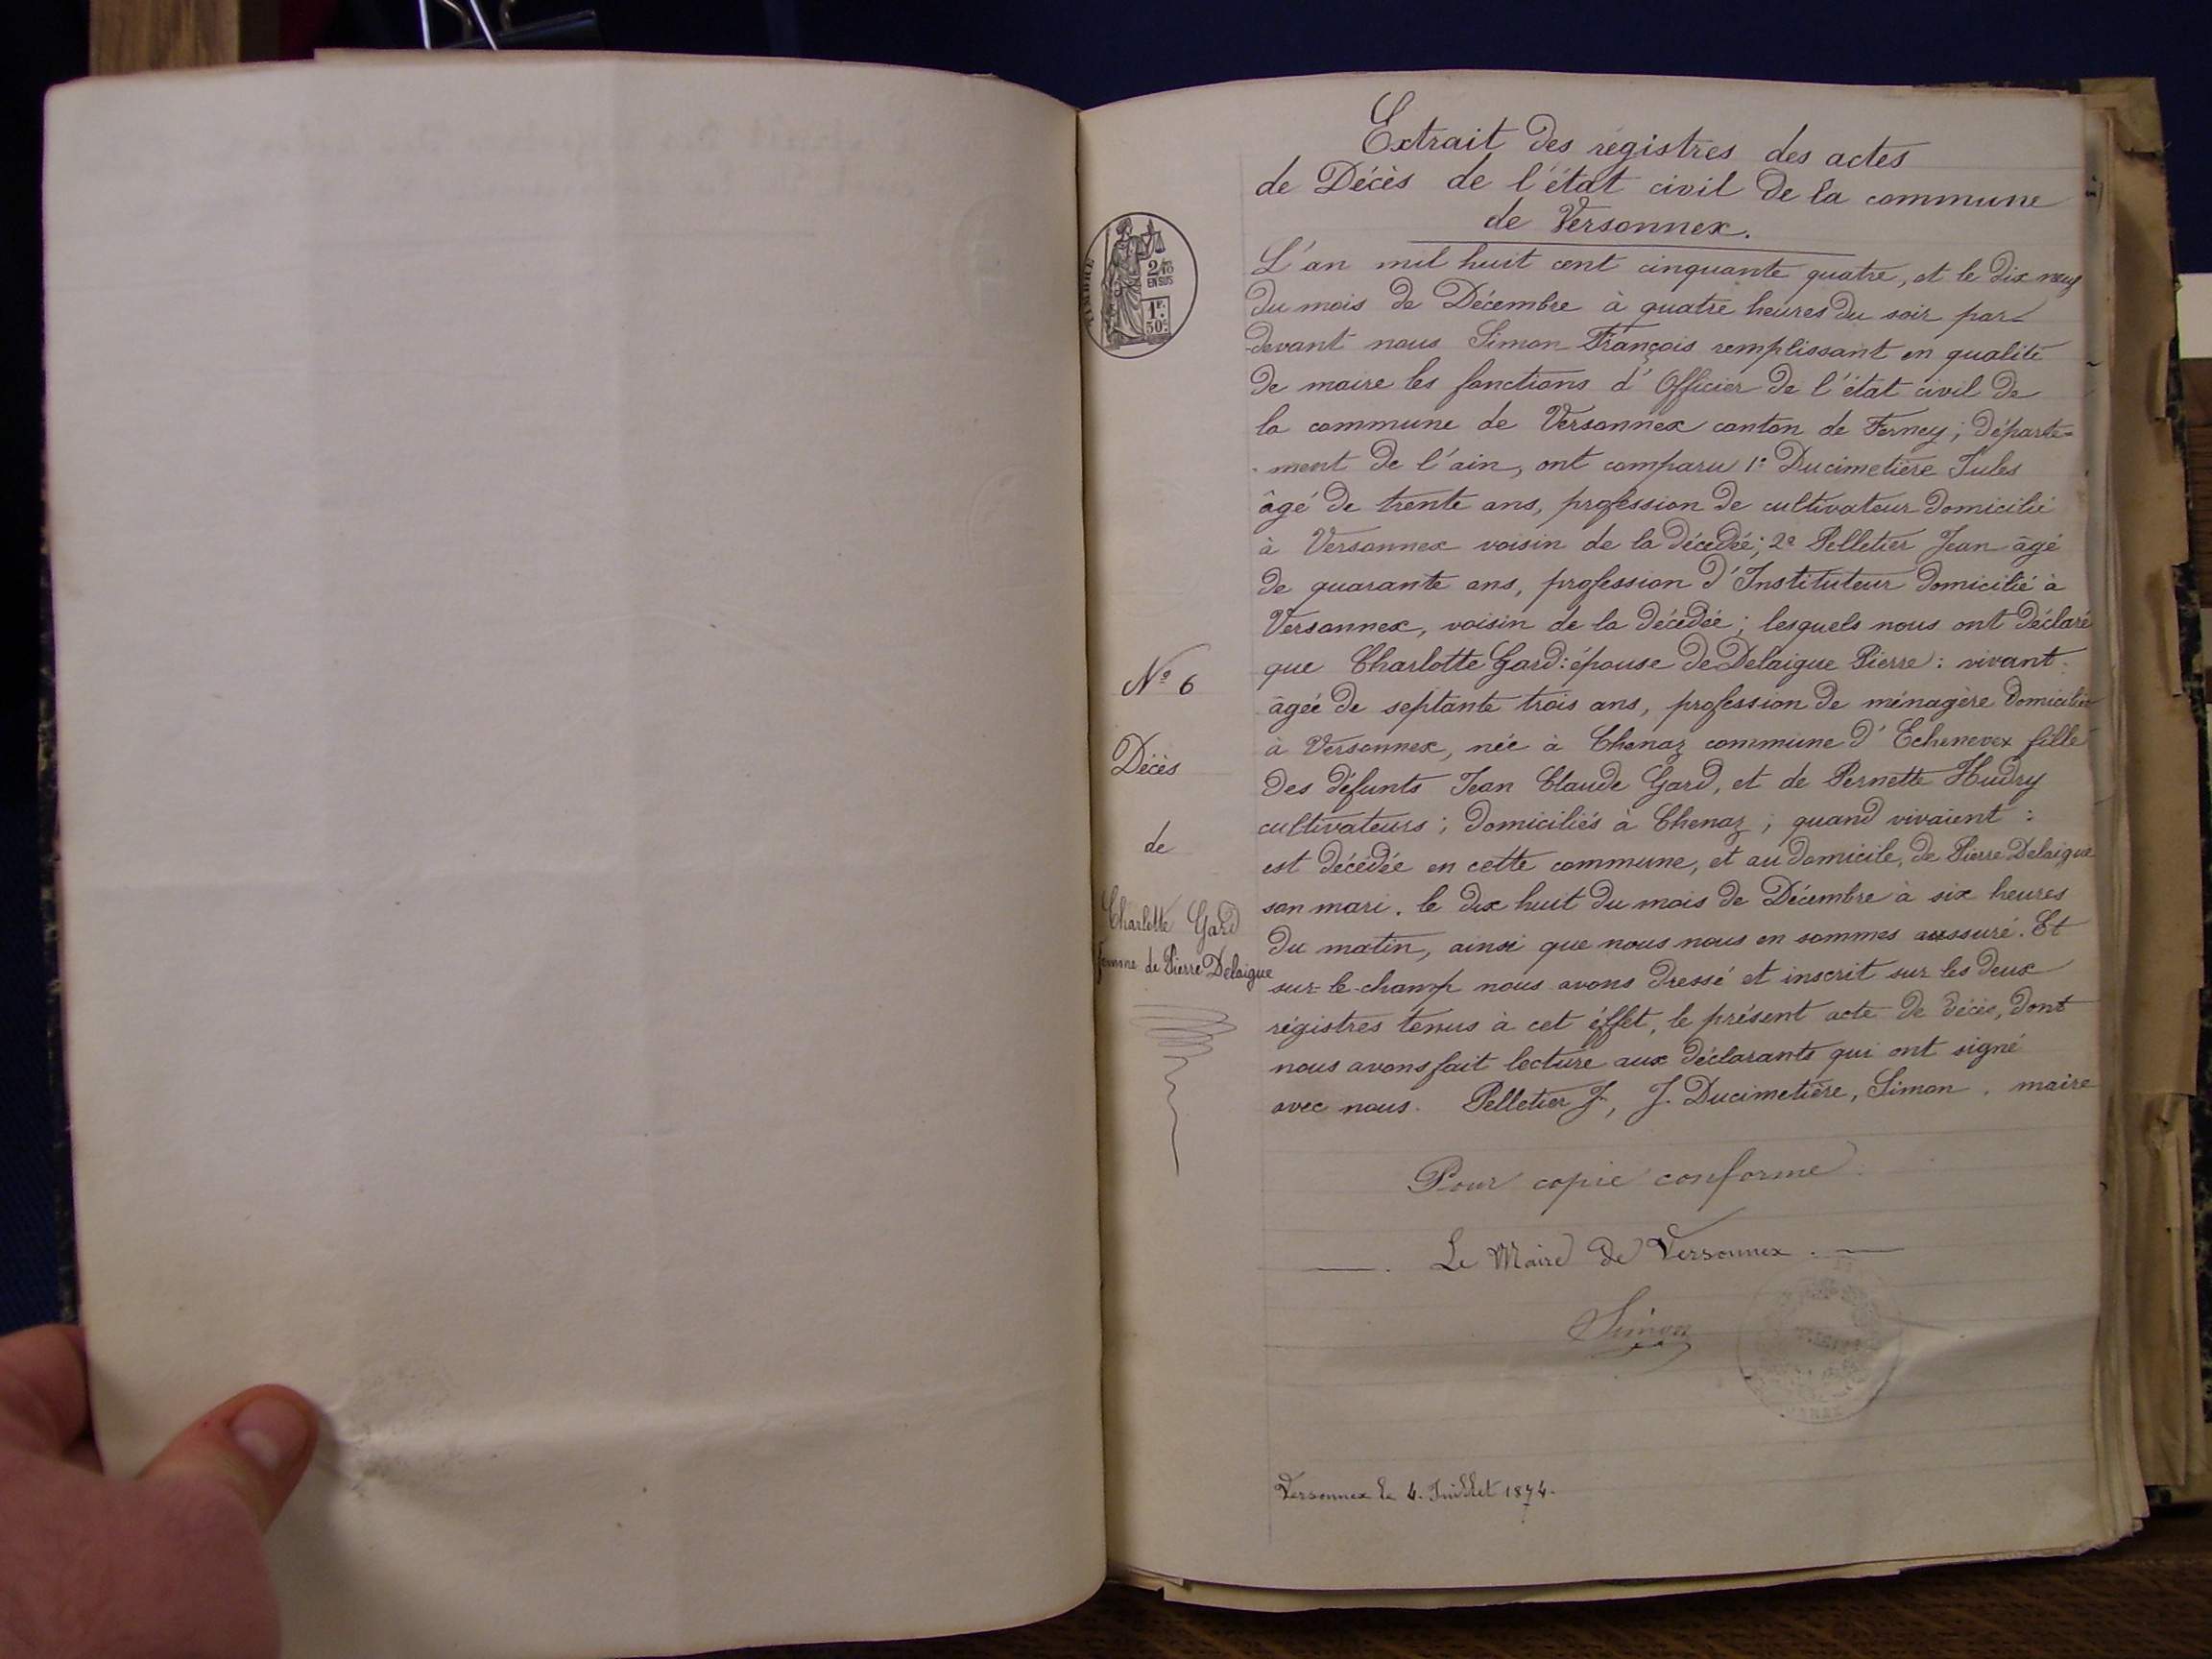 Extrait des régistres des actes
de Décès de l'état civil de la commune
de Versonnex.
TIMBRE
2/10
EN SUS
1F.
50c.
L'an mil huit cent cinquante quatre, et le dix neuf
du mois de Décembre à quatre heures du soir par-
devant nous Simon François remplissant en qualité
de maire les fonctions d'Officier de l'état civil de
la commune de Versonnex canton de Ferney; départe=
-ment de l'ain, ont comparu 1º Ducimetière Jules
âgé de trente ans, profession de cultivateur domicilié
à Versonnex voisin de la décédée; 2º Pelletier Jean âgé
de quarante ans, profession d'Instituteur domicilié à
Versonnex, voisin de la décédée; lesquels nous ont déclaré
que Charlotte Gard: épouse de Delaigue Pierre: vivant
âgée de septante trois ans, profession de ménagère domiciliée
à Versonnex, née à Chenaz commune d'Echenevex fille
des défunts Jean Claude Gard, et de Pernette Hudry
cultivateurs; domiciliés à Chenaz; quand vivaient:
est décédée en cette commune, et au domicile, de Pierre Delaigue
son mari. le dix huit du mois de Décembre à six heures
du matin, ainsi que nous nous en sommes assuré. Et
sur-le-champ nous avons dressé et inscrit sur les deux
régistres tenus à cet éffet, le présent acte de décès, dont
nous avons fait lecture aux déclarants qui ont signé
avec nous. Pelletier J, J. Ducimetière, Simon, maire
Nº 6
Décès
de
Charlotte Gard
femme de Pierre Delaigue
Pour copie conforme
Le Maire de Versonnex.
Simon
Versonnex le 4. Juillet 1874.